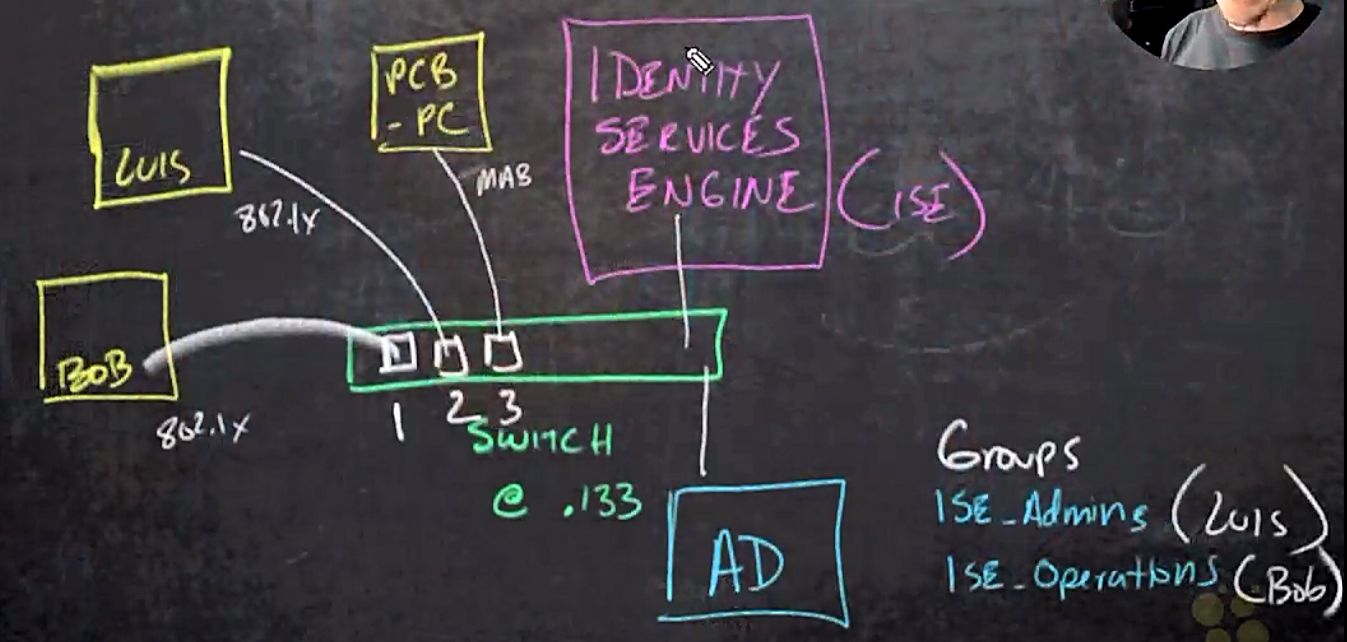 LUIS
802.1x
PCB
-PC
MAB
IDENTITY
SERVICES
ENGINE
(ISE)
BOB
802.1x
1 2 3
SWITCH
@ .133
AD
Groups
ISE_Admins (Luis)
ISE_Operations (Bob)